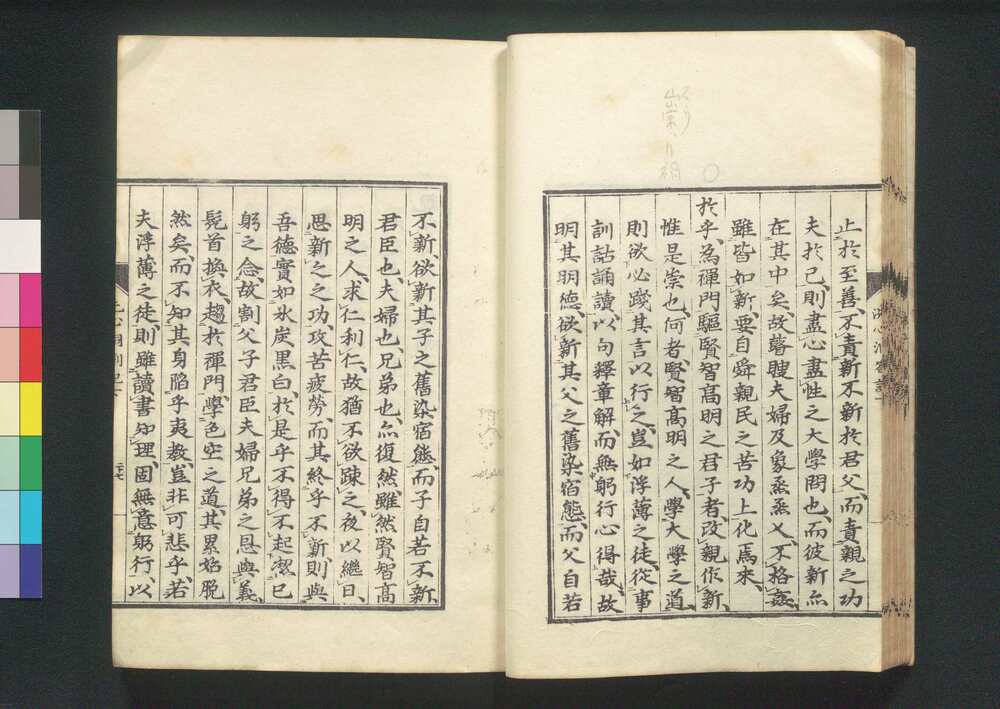 止於至善、不責新不新於君父、而責親之功
夫於己、則盡心盡性之大學問也、而彼新亦
在其中矣、故瞽瞍夫婦及象烝烝乂、不格姦、
雖皆如新、要自舜親民之苦功上化焉來、
於乎、為禪門驅賢智高明之君子者、改親作新、
惟是祟也、何者、賢智高明之人、學大學之道、
則欲必踐其言以行之、豈如浮薄之徒、從事
訓詁誦讀、以句釋章解、而無躬行心得哉、故
明其明德、欲新其父之舊染宿態、而父自若
不新、欲新其子之舊染宿態、而子自若不新、
君臣也、夫婦也、兄弟也、亦復然、雖然賢智高
明之人、求仁利仁、故猶不欲疎之、夜以繼日、
思新之之功、攻苦疲勞、而其終乎不新、則與
吾德實如氷炭黑白、於是乎不得不起潔己
躬之念、故割父子君臣夫婦兄弟之恩與義、
髡首換衣、趨於禪門、學色空之道、其累始脫
然矣、而不知其身陷乎夷教、豈非可悲乎、若
夫浮薄之徒、則雖讀書知理、固無意躬行、以